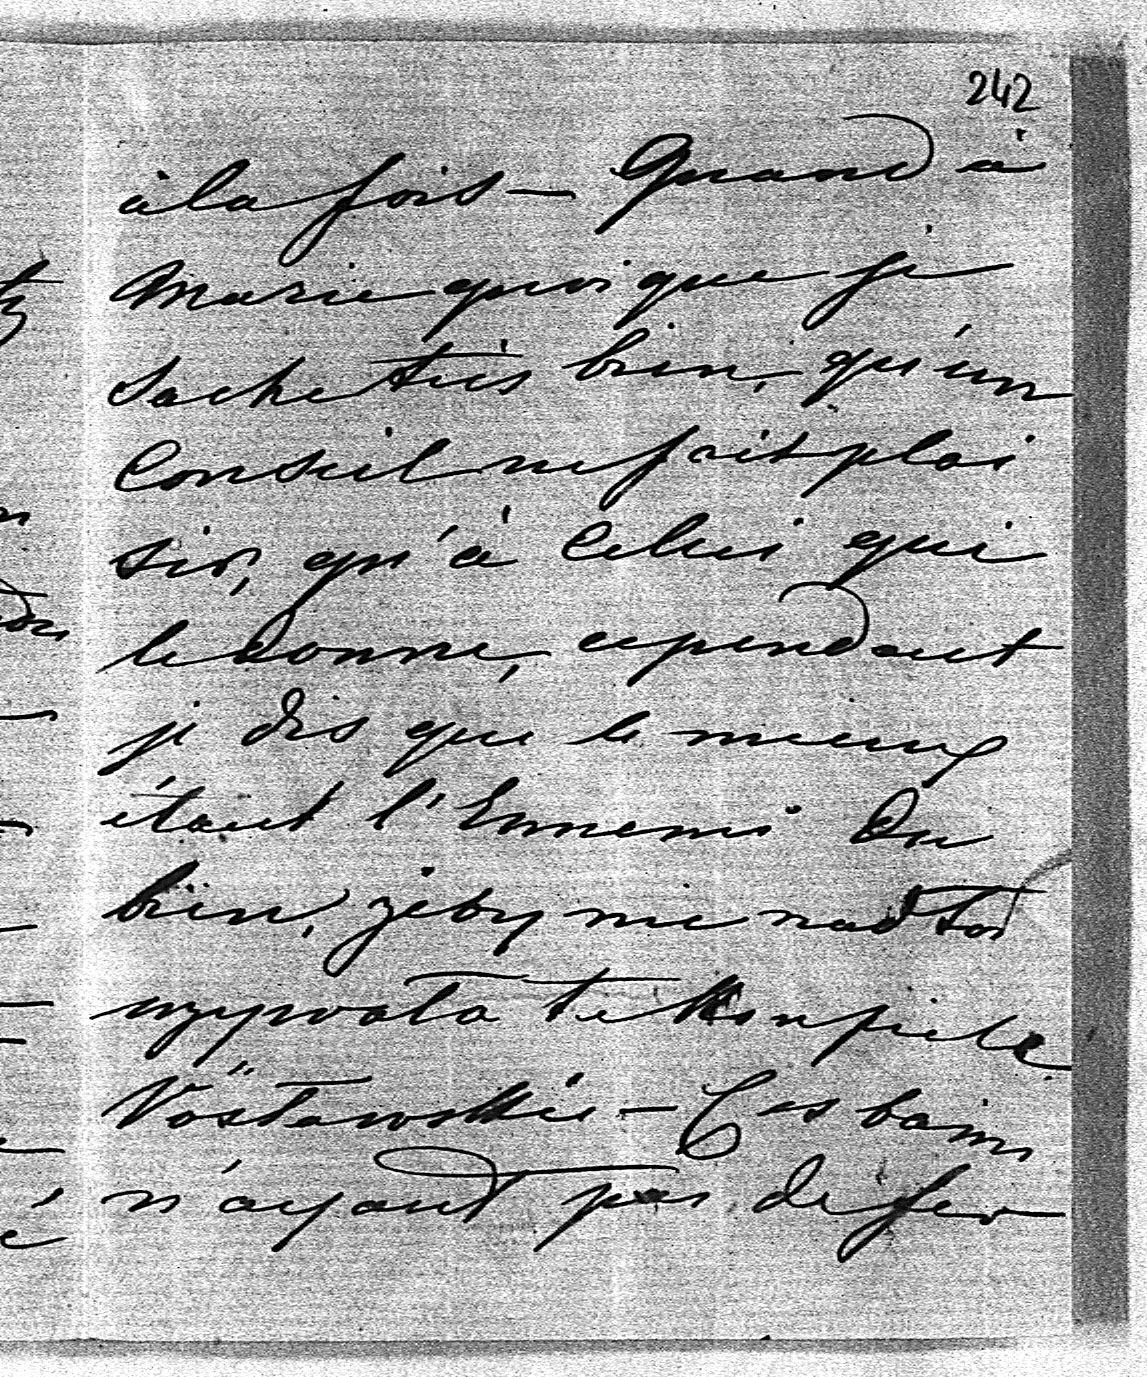 242
à la fois — Quand à
Marie quoique je
sache très bien, qu'un
Conseil ne fait plai
sir, qu'à celui qui
le donne, cependant
je dis que le mieux
étant l'Ennemi du
bien, żeby nie nad to
używała te Kąpiele
Vöslawskie — Ces bains
n'ayant pas de fer